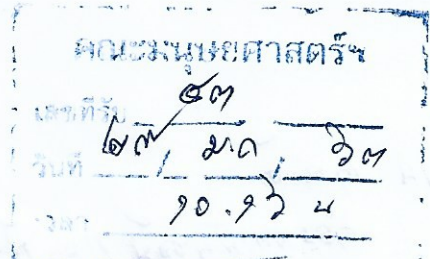 คณะมนุษยศาสตร์ฯ
เลขที่รับ
วันที่ ๒๗ / ม.ค / ๖๓
เวลา ๑๐.๑๖ น